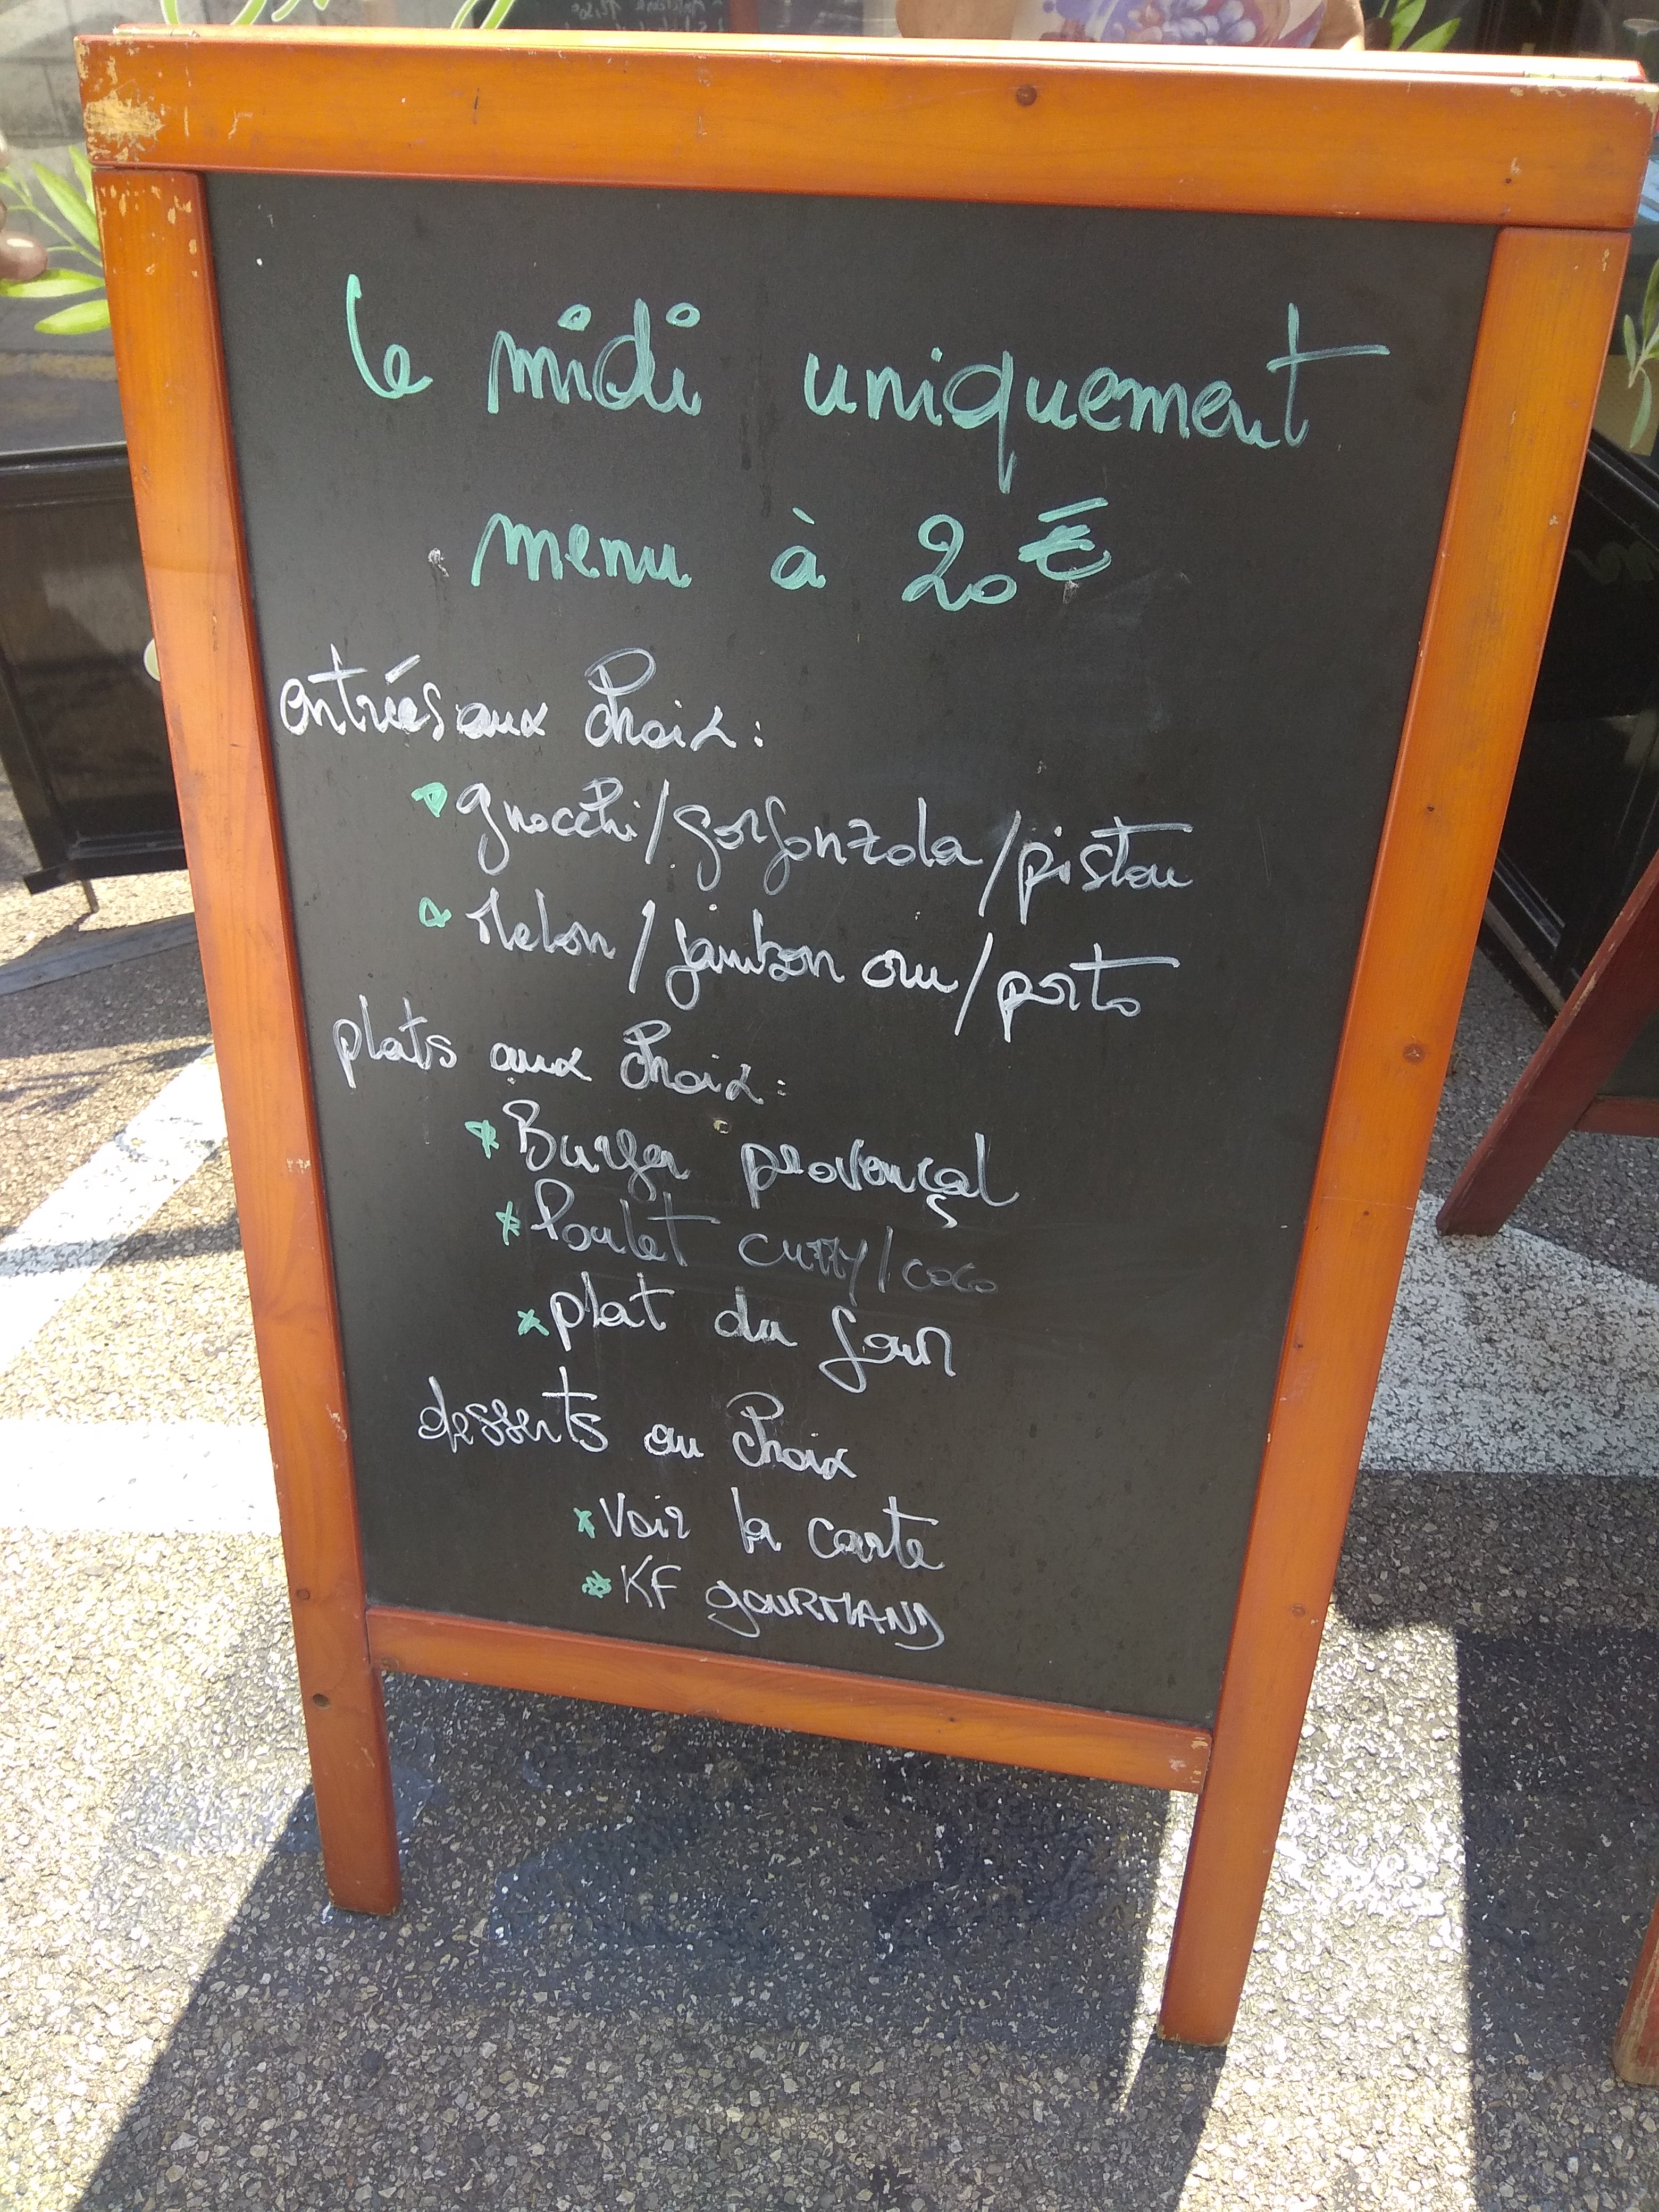 le midi uniquement
menu à 20€
entrées aux choix:
gnocchi/gorgonzola/pistou
Melon/jambon cru/porto
plats aux choix:
* Burger provençal
* Poulet curry/coco
* plat du jour
desserts au choix
* Voir la carte
* KF GOURMAND